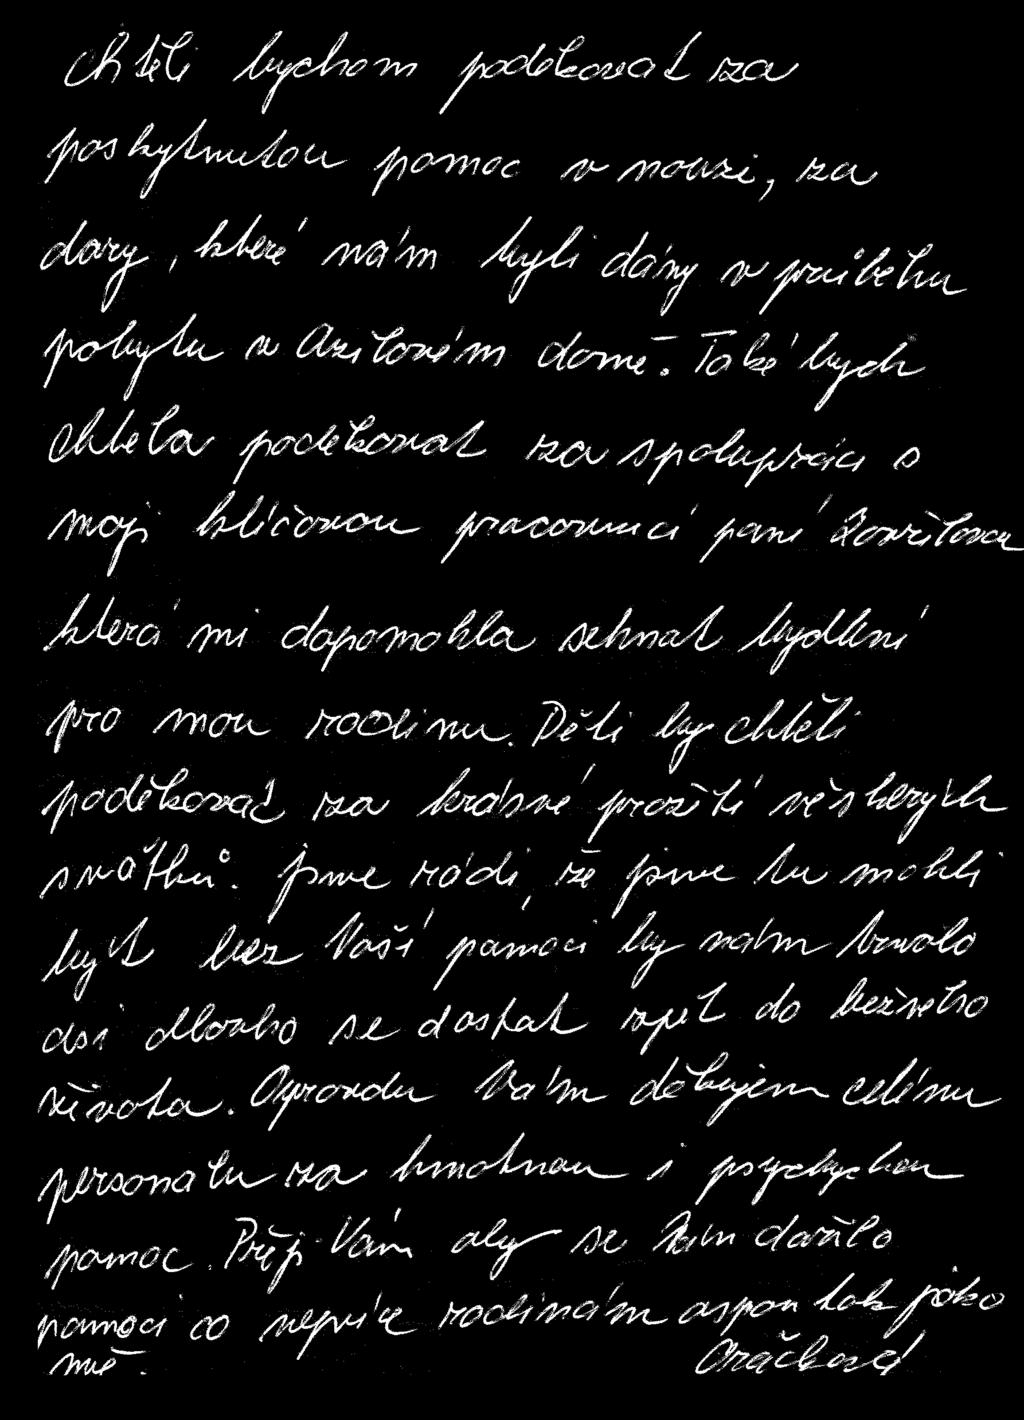 Chtěli bychom poděkovat za
poskytnutou pomoc v nouzi, za
dary, které nám byli dány v průběhu
pobytu v Azilovém domě. Také bych
chtěla poděkovat za spolupráci s
moji klíčovou pracovnicí paní
která mi dopomohla sehnat bydlení
pro mou rodinu. Děti by chtěli
poděkovat za krásné prožití věškerých
svátků. Jsme rádi, že jsme tu mohli
být bez Vaší pomoci by nám trvalo
asi dlouho se dostat zpět do bežneho
života. Opravdu Vám děkujem celému
personalu za hmotnou i psychychou
pomoc. Přeji Vám aby se Vam dařilo
pomoci co nejvíce rodinám aspon tak jako
mě.